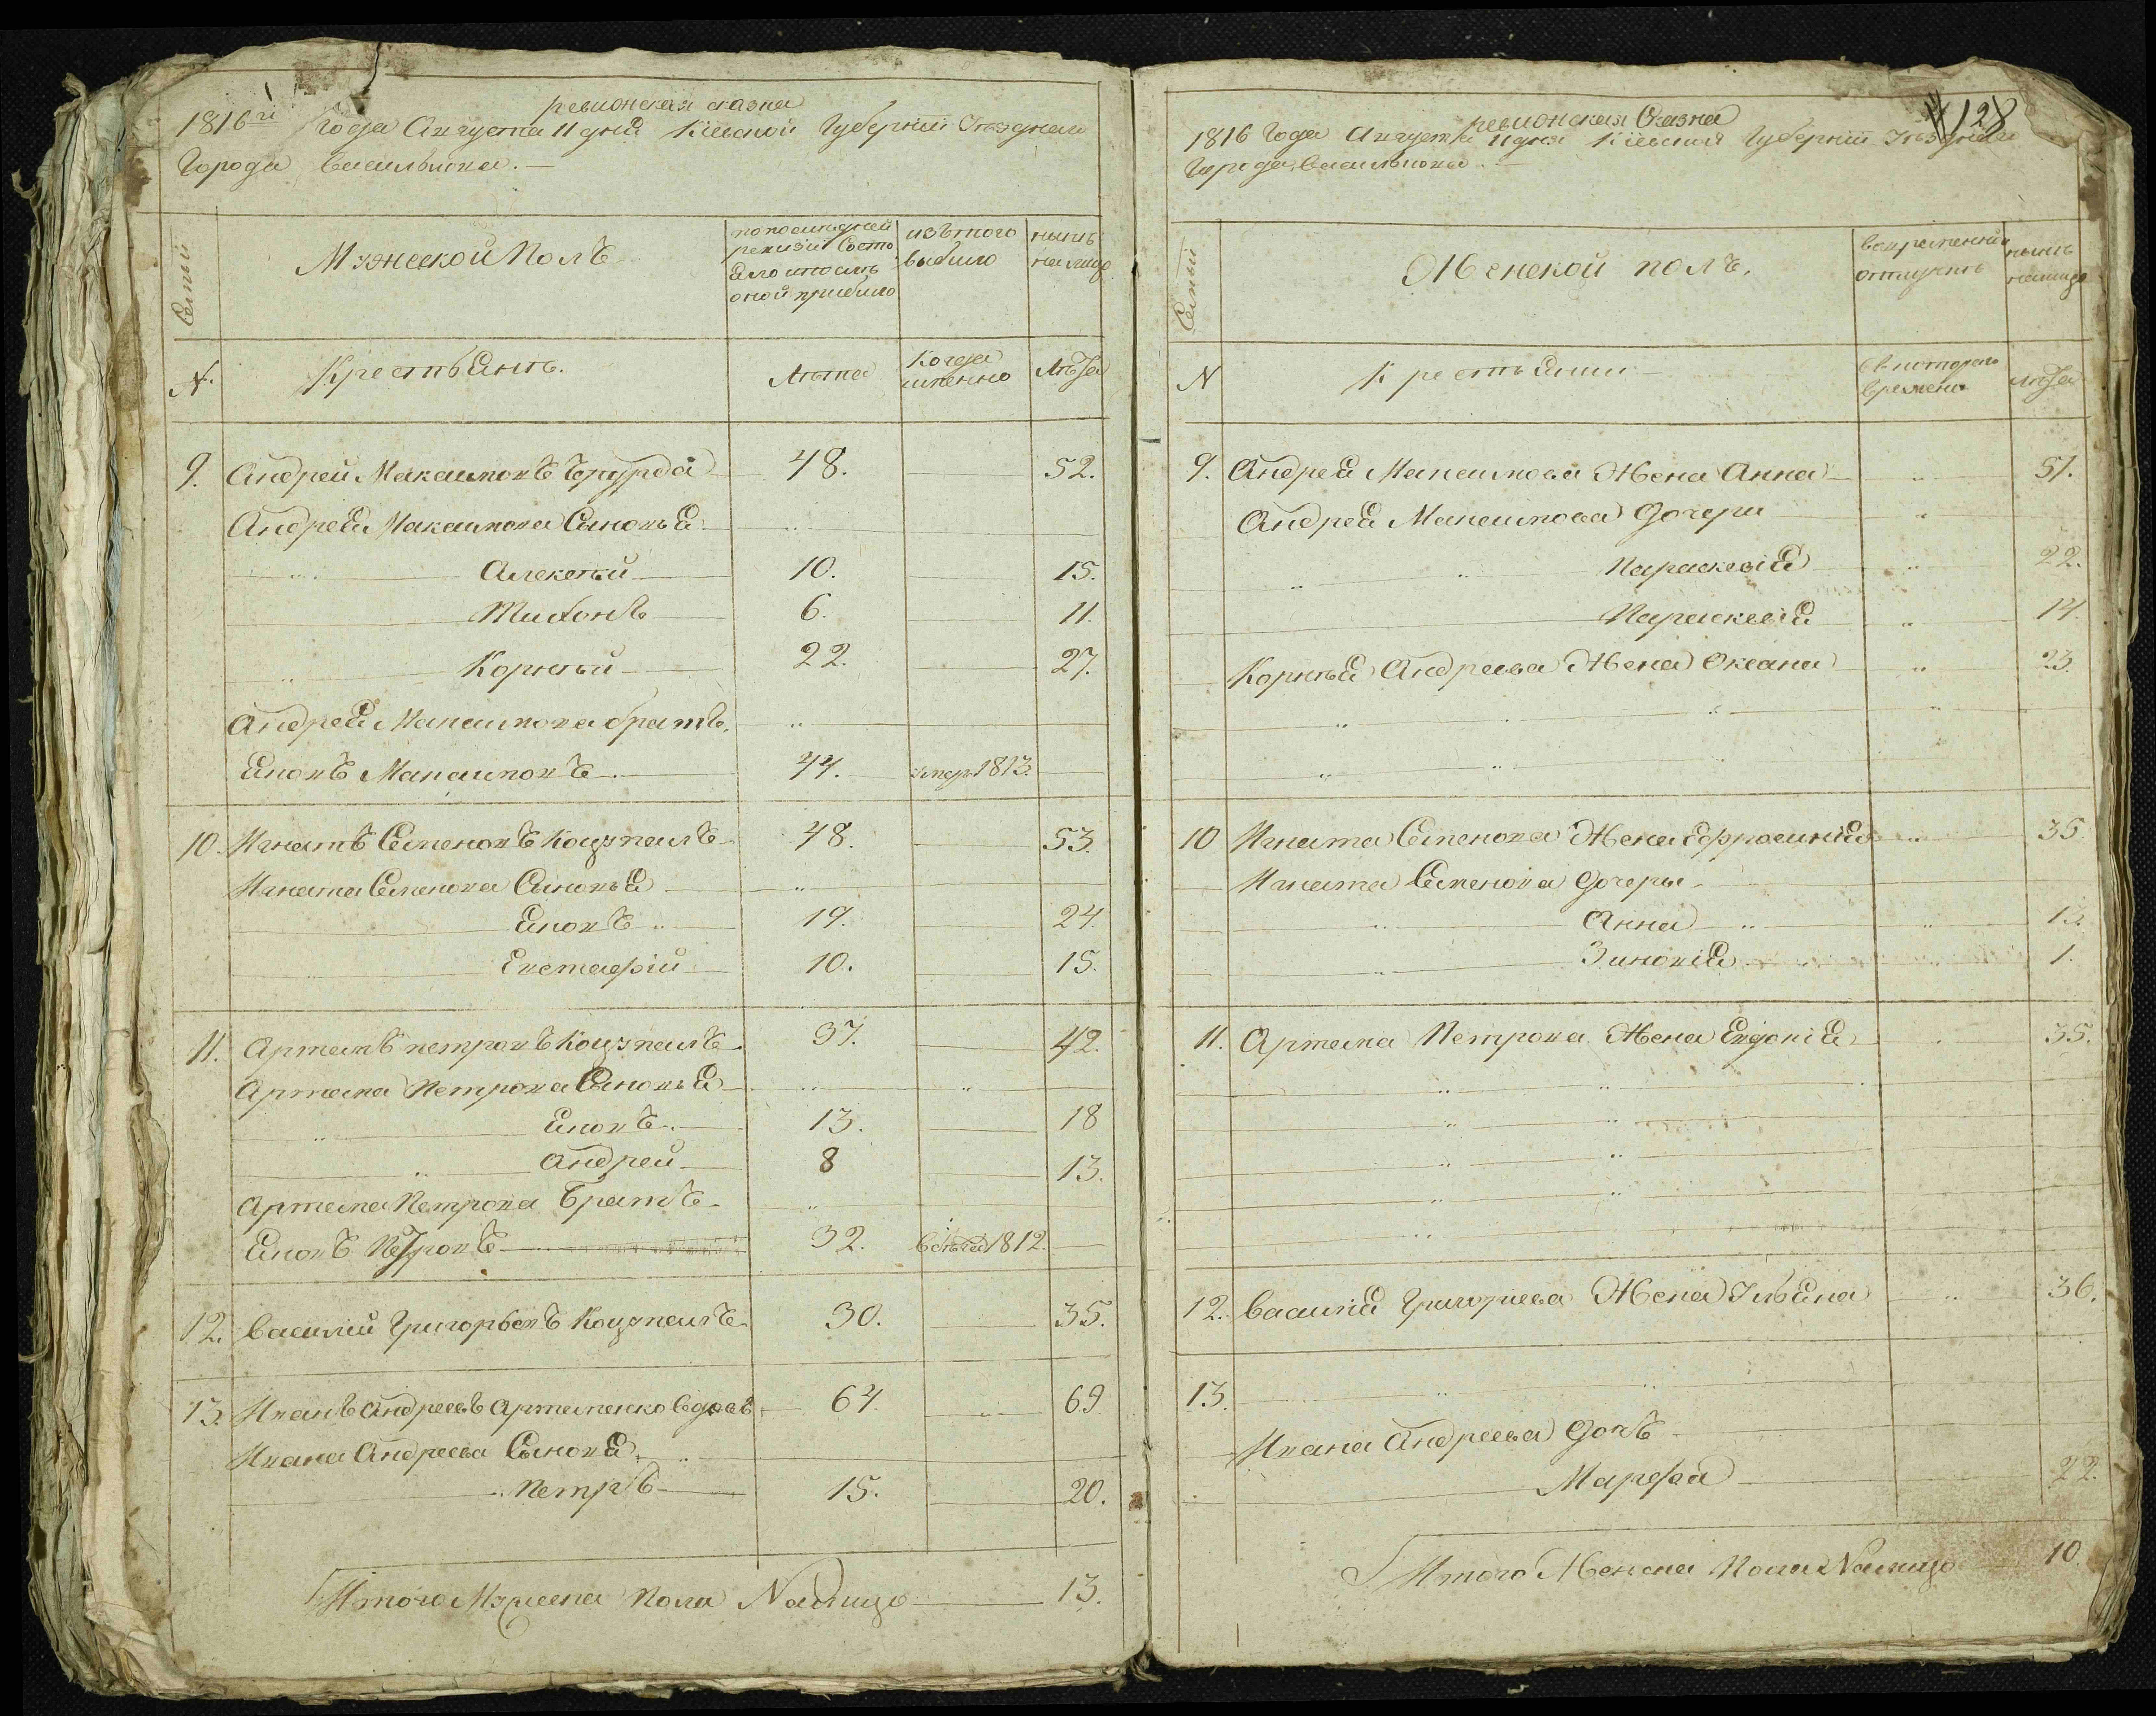 ревизская сказка
1816го Года Августа 11 дня Киевской Губернии Уезднаго
Города Василькова. —
Семьи
Мужеской Полъ
по последней
ревизии состо
яло и после
оной прибыло
изъ того
выбыло
ныне
на лицо
№.
Крестьяне.
Лета
Когда
именно
Лета
9. Андрей Максимовъ 48. 52.
Андрея Максимова Сыновья
Алексей 10. 15.
Тихонъ 6. 11.
Корней 22. 27.
Андрея Максимова братъ
Яковъ Максимовъ 44. умер 1813.
10. Игнатъ Семеновъ Коцюпалъ 48. 53.
Игната Семенова Сыновья
Яковъ 19. 24.
Евстафій 10. 15.
11. Артемъ Петровъ Коцюпалъ 37. 42.
Артема Петрова Сыновья
Яковъ 13. 18
Андрей 8 13.
Артема Петрова Братъ
Яковъ Петровъ 32. 1812.
12. Василий Григорьевъ Коцюпалъ 30. 35.
13. Иванъ Андреевъ Артеменко вдовъ 64. 69
Ивана Андреева Сыновя
Петръ 15. 20.
Итого Мужеска Пола Налицо 13.
128
ревизская Сказка
1816 Года Августа 11 дня Киевской Губернии Уезднаго
Города Василькова. —
Семьи
Женской полъ.
во временной
отлучке
ныне
налицо
N
Крестьянки
съ котораго
времени
лета
9. Андрея Максимова Жена Анна 51.
Андрея Максимова Дочери
Параскевія 22.
Параскевія 14.
Корнея Андреева Жена Оксана 23.
10 Игната Семенова Жена Ефросинія 35.
Игната Семенова Дочеры
Анна 13.
Зиновія 1.
11. Артема Петрова Жена Евдокія 35.
12. Василія Григориева Жена Ульяна 36.
13.
Ивана Андреева Дочъ
Марфа 22.
Итого Женска Пола Налицо 10.